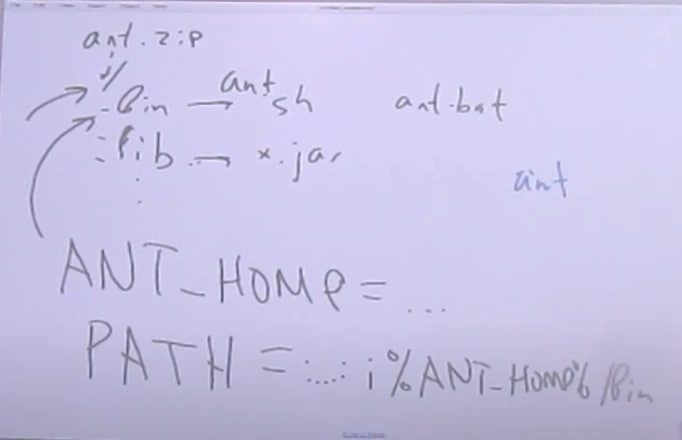 ant.zip
- bin → ant.sh ant.bat
- lib → *.jar
ant
ANT_HOME=...
PATH=...;%ANT_HOME%/bin